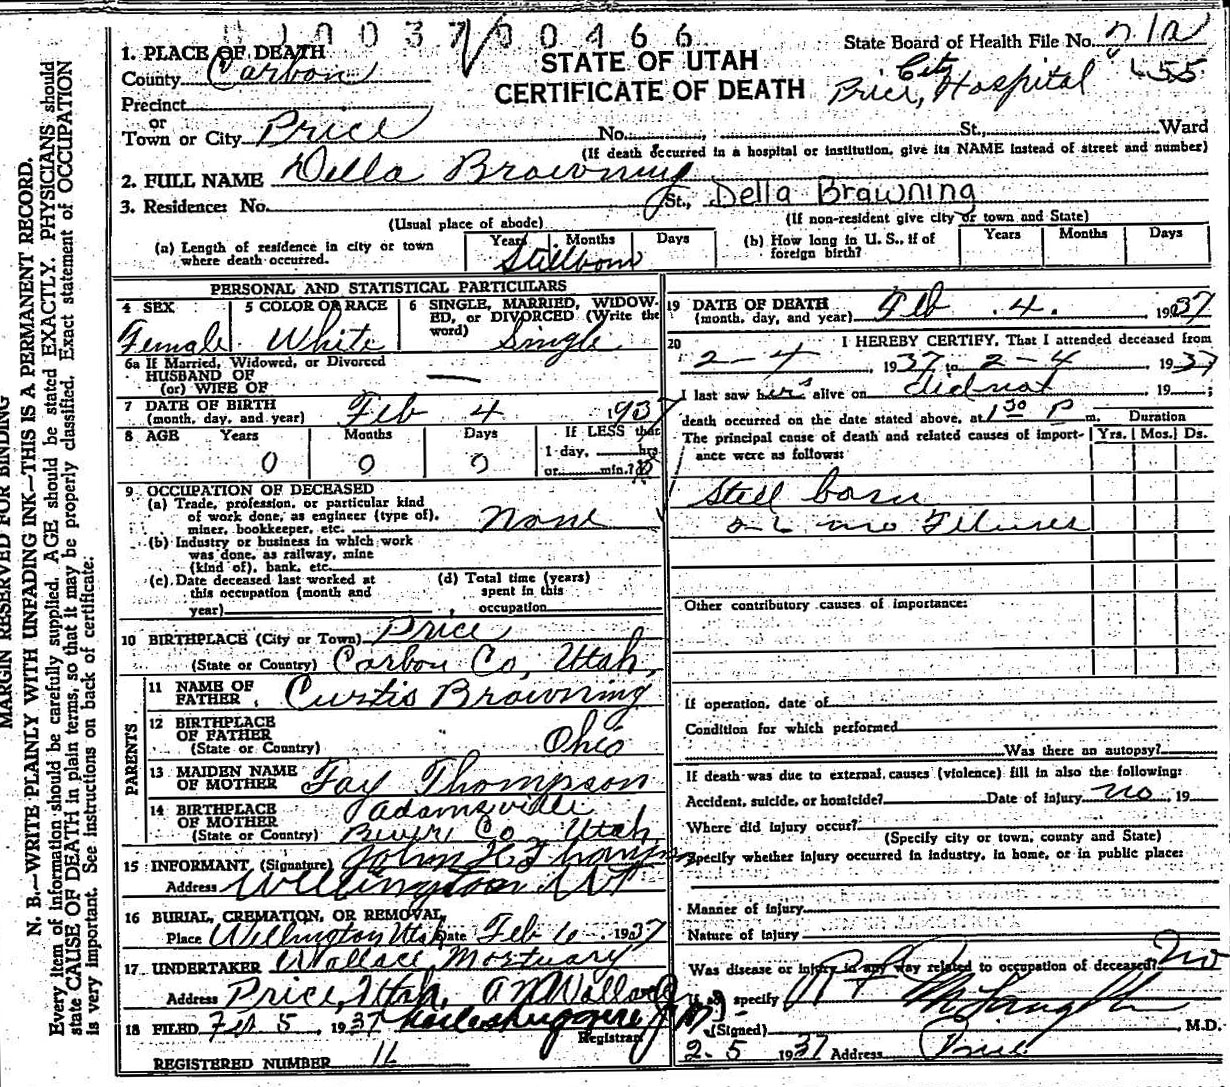 003700466
1. PLACE OF DEATH
County Carbon
Precinct
or
Town or City Price No. , St., Ward
(If death occurred in a hospital or institution, give its NAME instead of street and number)
STATE OF UTAH
CERTIFICATE OF DEATH
State Board of Health File No.
City
Price, Hospital 655
2. FULL NAME Della Browning
3. Residence: No. St., Della Browning
(Usual place of abode) (If non-resident give city or town and State)
(a) Length of residence in city or town where death occurred. Years Months Days
Stillborn
(b) How long in U. S., if of foreign birth? Years Months Days
PERSONAL AND STATISTICAL PARTICULARS
4 SEX 5 COLOR OR RACE 6 SINGLE, MARRIED, WIDOWED, or DIVORCED (Write the word)
Female White Single
6a If Married, Widowed, or Divorced
HUSBAND OF
(or) WIFE OF —
7 DATE OF BIRTH
(month, day, and year) Feb 4 1937
8 AGE Years Months Days If LESS than
0 0 0 1 day, hrs
or min.?
9 OCCUPATION OF DECEASED
(a) Trade, profession, or particular kind
of work done, as engineer (type of),
miner, bookkeeper, etc. none
(b) Industry or business in which work
was done, as railway, mine
(kind of), bank, etc.
(c) Date deceased last worked at
this occupation (month and
year)
(d) Total time (years)
spent in this
occupation
10 BIRTHPLACE (City or Town) Price
(State or Country) Carbon Co, Utah,
PARENTS
11 NAME OF
FATHER Curtis Browning
12 BIRTHPLACE
OF FATHER
(State or Country) Ohio
13 MAIDEN NAME
OF MOTHER Fay Thompson
14 BIRTHPLACE
OF MOTHER
(State or Country) Adamsville
Bever Co, Utah
15 INFORMANT (Signature) John H
Address Wellington Ut
16 BURIAL, CREMATION, OR REMOVAL,
Place Wellington Utah Date Feb 6 1937
17 UNDERTAKER Wallace Mortuary
Address Price, Utah, A N Wallace
18 FILED Feb 5, 1937
Registrar
REGISTERED NUMBER 16
19 DATE OF DEATH
(month, day, and year) Feb 4. 1937
20 I HEREBY CERTIFY, That I attended deceased from
2-4, 1937 to 2-4 1937
I last saw her alive on did not 19 ;
death occurred on the date stated above, at 1 30 P m. Duration
The principal cause of death and related causes of importance were as follows: Yrs. Mos. Ds.
Still born
Other contributory causes of importance:
If operation, date of
Condition for which performed
Was there an autopsy?
If death was due to external causes (violence) fill in also the following:
Accident, suicide, or homicide? Date of injury no, 19
Where did injury occur?
(Specify city or town, county and State)
Specify whether injury occurred in industry, in home, or in public place:
Manner of injury
Nature of injury
Was disease or injury in any way related to occupation of deceased? No
If so, specify
(Signed) McLaughlin, M.D.
2-5 1937 Address Price
MARGIN RESERVED FOR BINDING
N. B.—WRITE PLAINLY WITH UNFADING INK—THIS IS A PERMANENT RECORD.
Every item of information should be carefully supplied. AGE should be stated EXACTLY. PHYSICIANS should
state CAUSE OF DEATH in plain terms, so that it may be properly classified. Exact statement of OCCUPATION
is very important. See instructions on back of certificate.